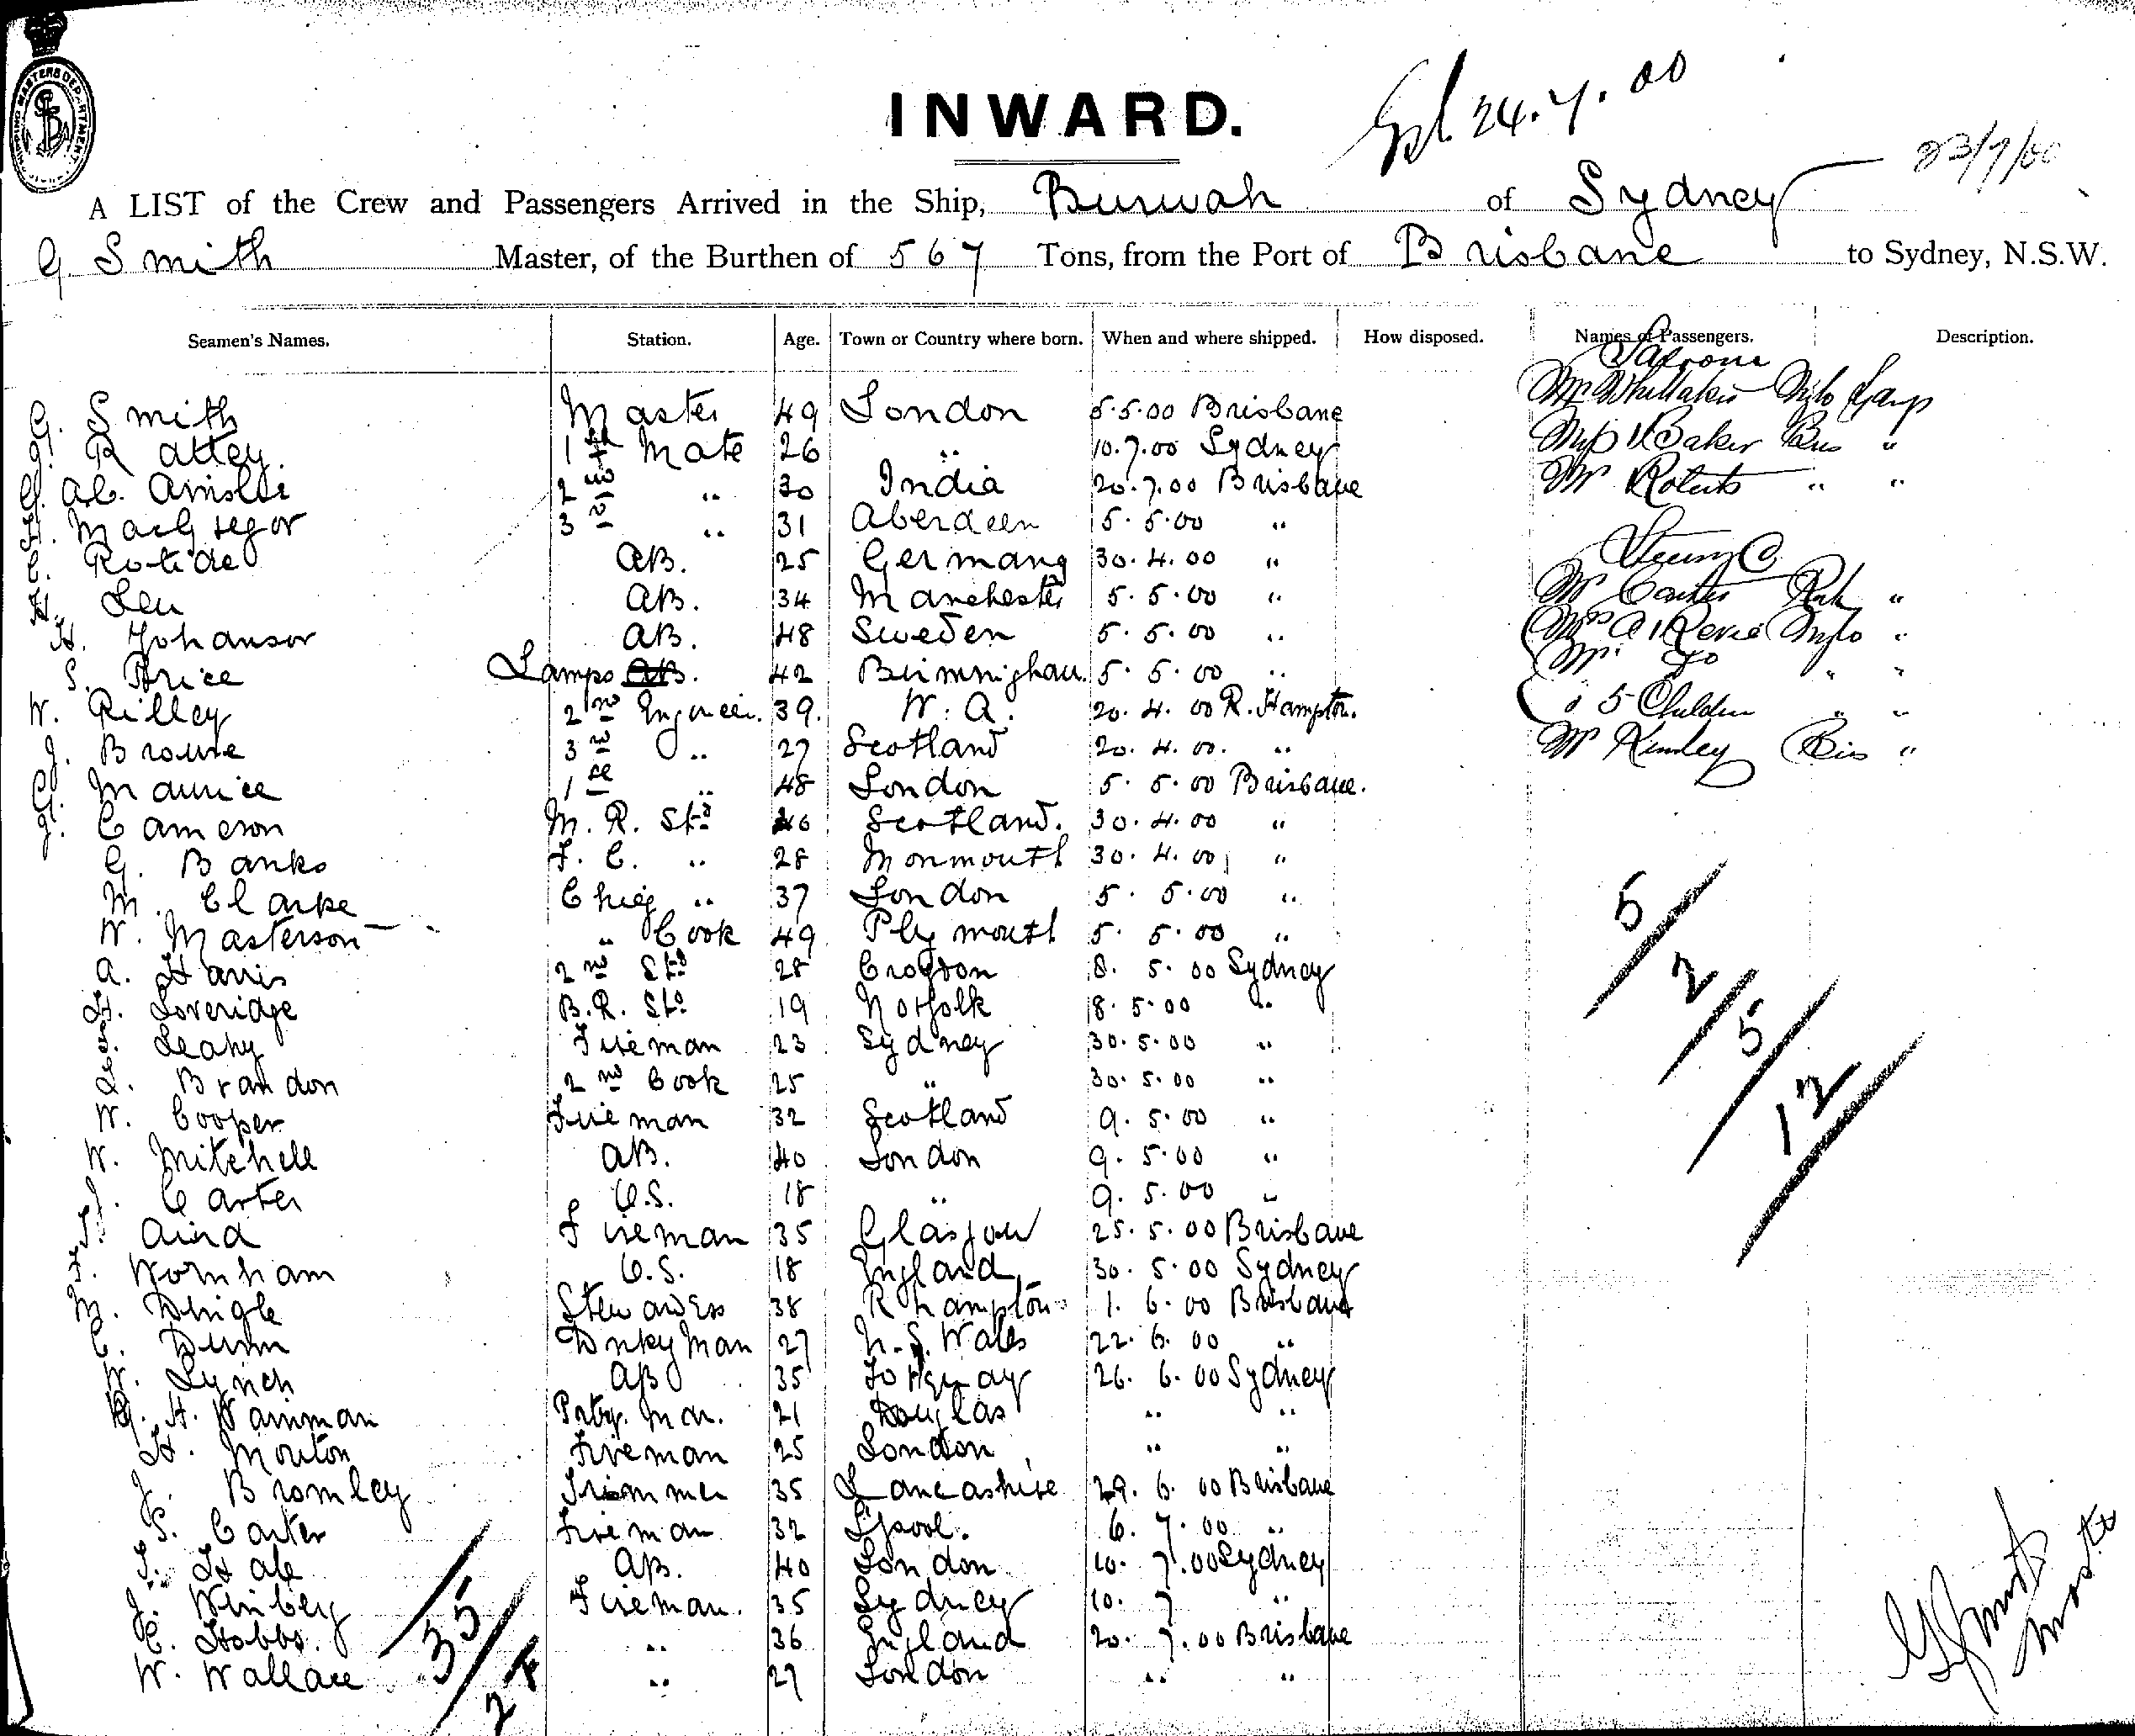 SHIPPING MASTERS DEPARTMENT
INWARD.
24.7.00
23/7/00
A LIST of the Crew and Passengers Arrived in the Ship, Burwah of Sydney
G Smith Master, of the Burthen of 567 Tons, from the Port of Brisbane to Sydney, N.S.W.
Seamen's Names. Station. Age. Town or Country where born. When and where shipped. How disposed. Names of Passengers. Description.
Saloon
G. Smith Master 49 London 5.5.00 Brisbane Mr Whittaker
R attey 1st Mate 26 " 10.7.00 Sydney Baker "
2nd " 30 India 20.7.00 Brisbane Mr Roberts " "
H. MacGregor 3rd " 31 Aberdeen 5.5.00 "
C. AB. 25 Germany 30.4.00 "
H. Leu AB. 34 Manchester 5.5.00 " Mr "
H. Johanson AB. 48 Sweden 5.5.00 " "
S. Price Lamps AB. 42 Birmingham 5.5.00 " Mr Do " "
W. Rilley 2nd Engineer. 39. W. A. 20.4.00 R. Hampton. 5 Children " "
J. Browne 3rd " 27 Scotland 20.4.00. " Mr "
Maurice 1st " 48 London 5.5.00 Brisbane.
J. Cameron M. R. Std 46 Scotland. 30.4.00 "
G. Banks F. C. " 28 Monmouth 30.4.00 "
M. Clarke Chief " 37 London 5.5.00 "
W. Masterson " Cook 49 Plymouth 5.5.00 "
A. Harris 2nd Std 28 Croydon 8.5.00 Sydney
H. Loveridge B.R. Std 19 Norfolk 8.5.00 "
Leahy Fireman 23 Sydney 30.5.00 "
L. Brandon 2nd Cook 25 " 30.5.00 "
W. Cooper Fireman 32 Scotland 9.5.00 "
W. Mitchell AB. 40 London 9.5.00 "
J. Carter O.S. 18 " 9.5.00 "
T. Aird Fireman 35 Glasgow 25.5.00 Brisbane
F. Wornham O.S. 18 England 30.5.00 Sydney
M. Dhigle Stewardess 38 R hampton 1.6.00 Brisbane
C. Dunn Dnkyman 27 N.S. Wales 22.6.00 "
W. Lynch AB 35 Torquay 26.6.00 Sydney
H. Wainman Ptry. Man. 21 Douglas " "
H. Mouton Fireman 25 London " "
J. Bromley Trimmer 35 Lancashire 29.6.00 Brisbane
S. Carter Fireman 32 Lpool. 6.7.00 "
T. Hale AB. 40 London 10.7.00 Sydney
J. Winberg Fireman. 35 Sydney 10.7 "
C. Hobbs. " 36 England 20.7.00 Brisbane
W. Wallace " 27 London " "
5/2/5/12
35/
G Smith
Master